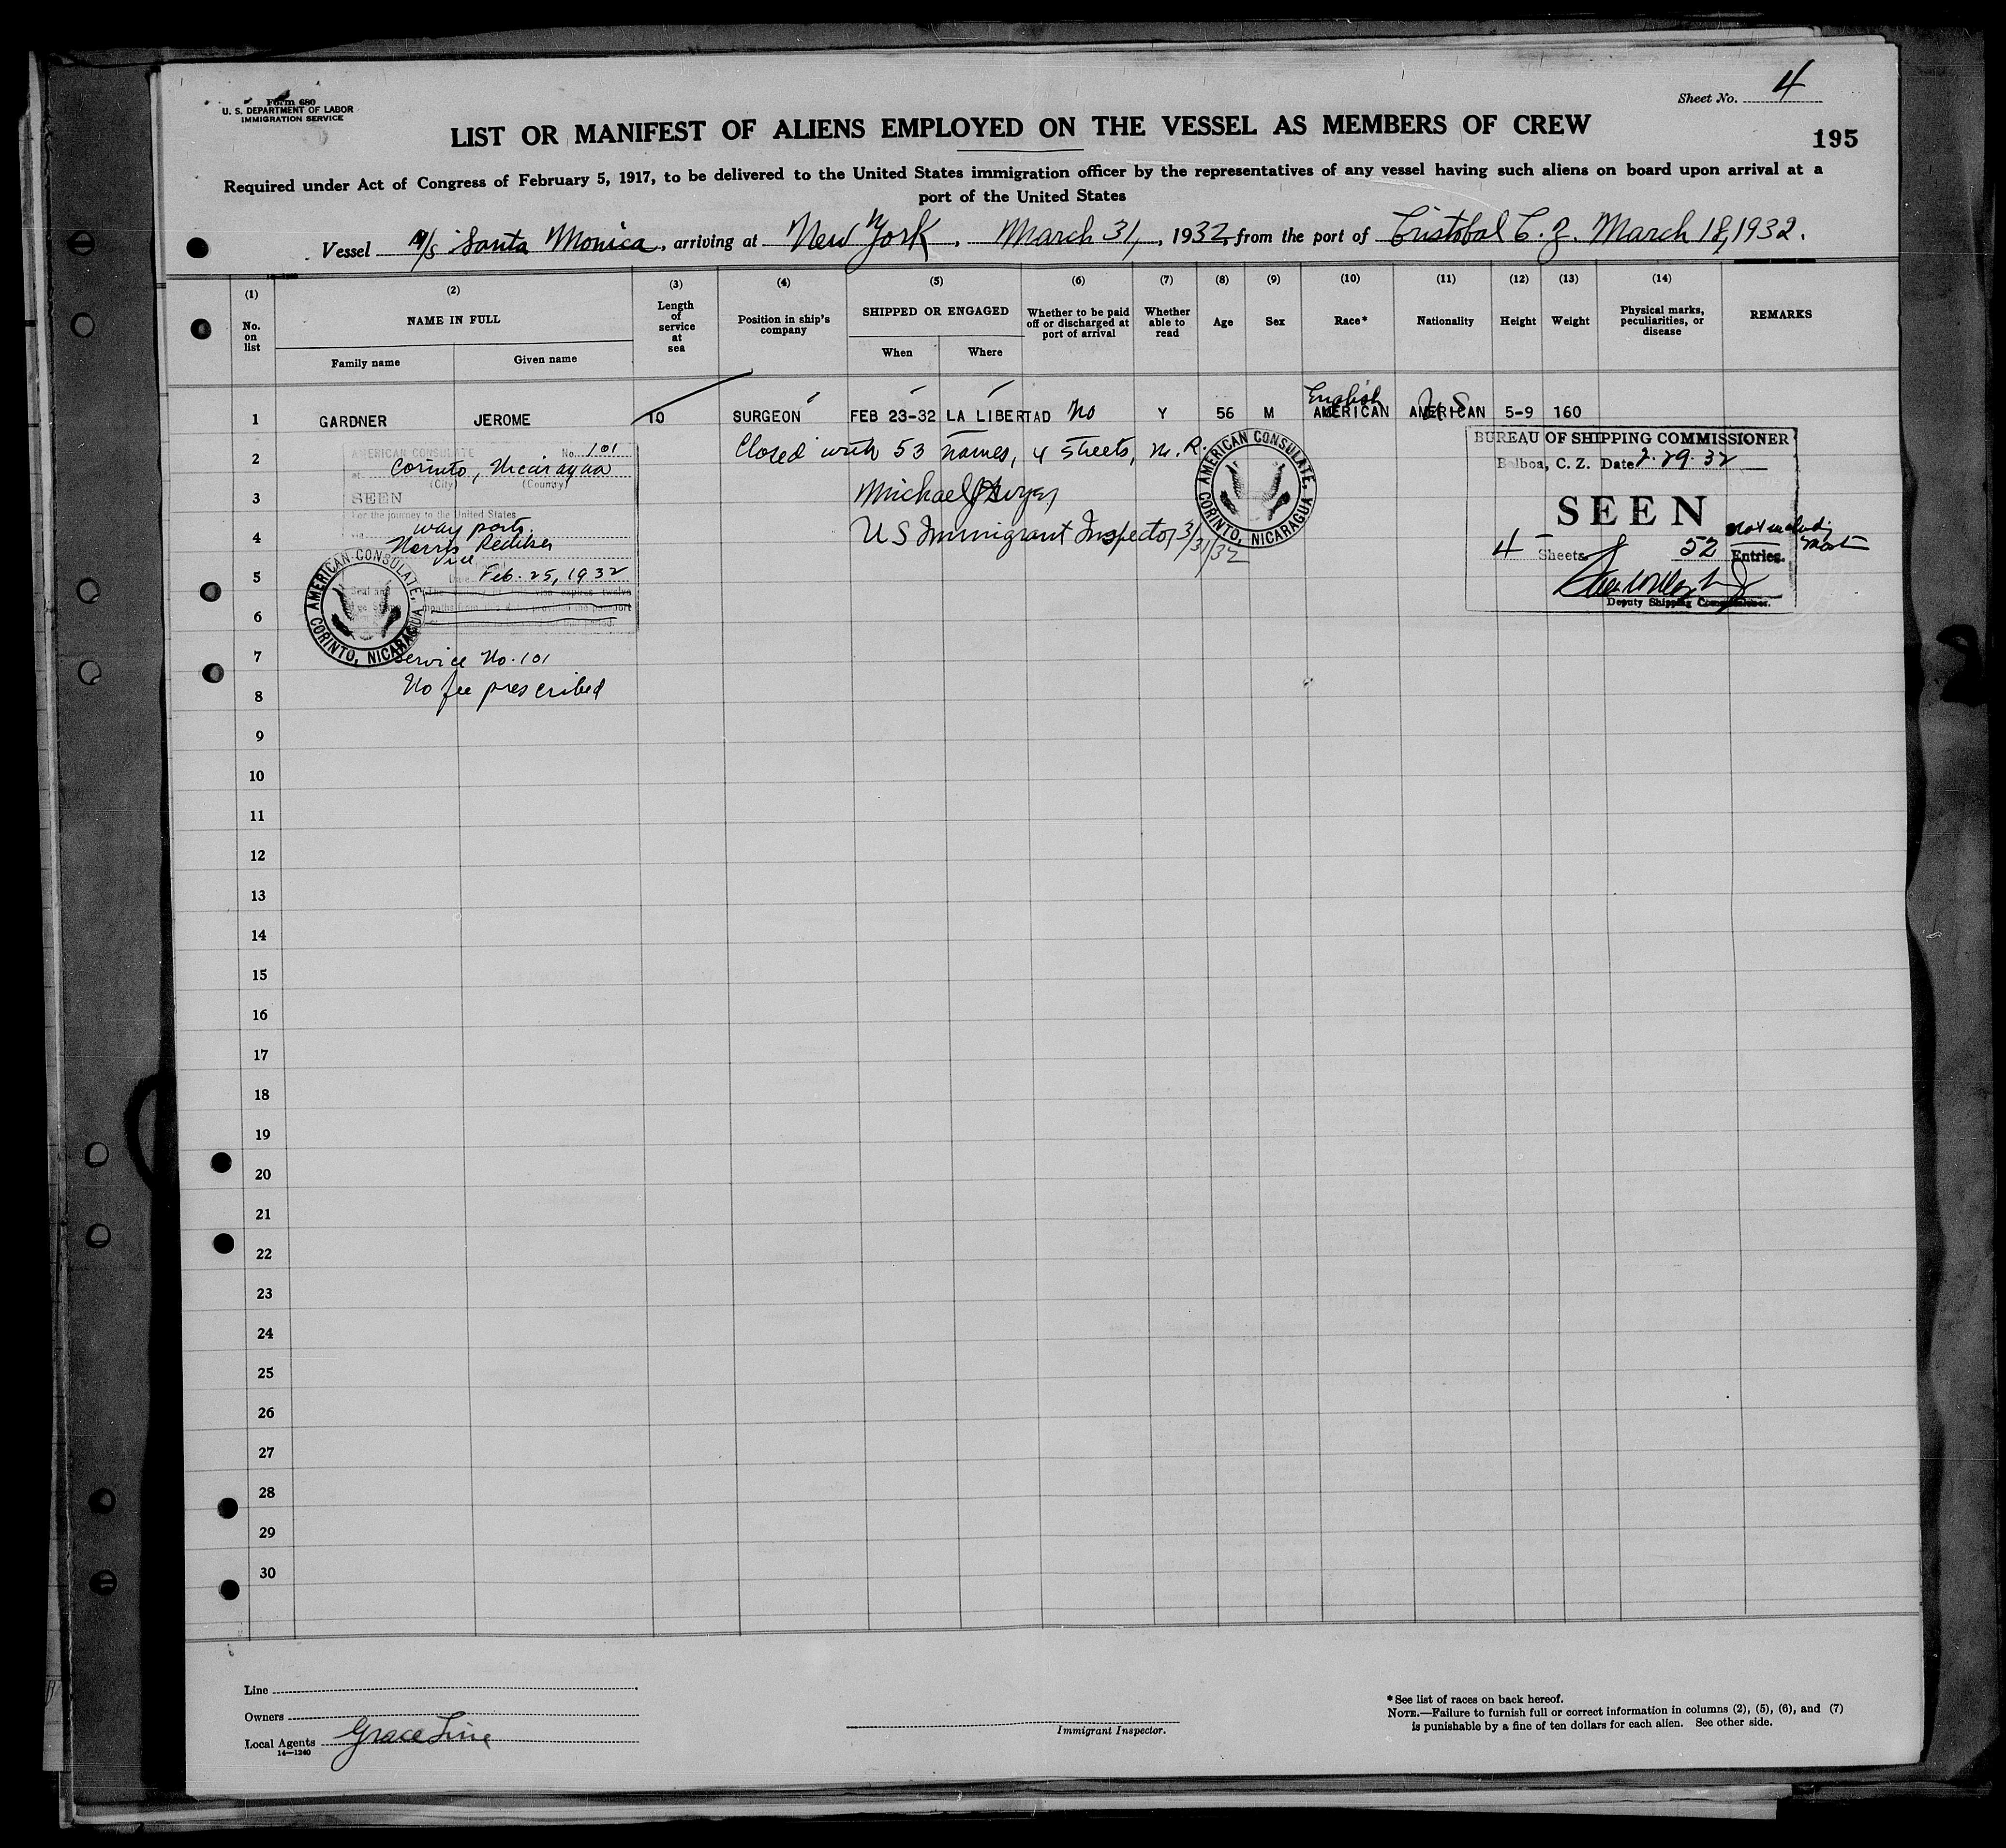 Form 680
U. S. DEPARTMENT OF LABOR
IMMIGRATION SERVICE
Sheet No. 4
195
LIST OR MANIFEST OF ALIENS EMPLOYED ON THE VESSEL AS MEMBERS OF CREW
Required under Act of Congress of February 5, 1917, to be delivered to the United States immigration officer by the representatives of any vessel having such aliens on board upon arrival at a
port of the United States
Vessel M/S Santa Monica, arriving at New York, March 31, 1932, from the port of Cristobal C. Z. March 18, 1932.
(1) (2) (3) (4) (5) (6) (7) (8) (9) (10) (11) (12) (13) (14)
No. on list
NAME IN FULL
Family name
Given name
Length of service at sea
Position in ship's company
SHIPPED OR ENGAGED
When
Where
Whether to be paid off or discharged at port of arrival
Whether able to read
Age
Sex
Race*
Nationality
Height
Weight
Physical marks, peculiarities, or disease
REMARKS
English
1 GARDNER JEROME 10 SURGEON FEB 23-32 LA LIBERTAD No Y 56 M AMERICAN AMERICAN U S 5-9 160
2
3
4
5
6
7
8
9
10
11
12
13
14
15
16
17
18
19
20
21
22
23
24
25
26
27
28
29
30
AMERICAN CONSULATE No. 101
at Corinto, Nicaragua
(City) (Country)
SEEN
For the journey to the United States
via way ports.
Vice
Date Feb. 25, 1932
AMERICAN CONSULATE, CORINTO, NICARAGUA
Service No. 101
No fee prescribed
Closed with 53 names, 4 sheets, M. R.
Michael J
U S Immigrant Inspector 3/31/32
AMERICAN CONSULATE, CORINTO, NICARAGUA
BUREAU OF SHIPPING COMMISSIONER
Balboa, C. Z. Date 2-29-32
SEEN
not including
4 Sheets 52 Entries.
Deputy Shipping Commissioner.
Line
Owners
Local Agents Grace Line
14—1240
Immigrant Inspector.
*See list of races on back hereof.
NOTE.—Failure to furnish full or correct information in columns (2), (5), (6), and (7)
is punishable by a fine of ten dollars for each alien. See other side.